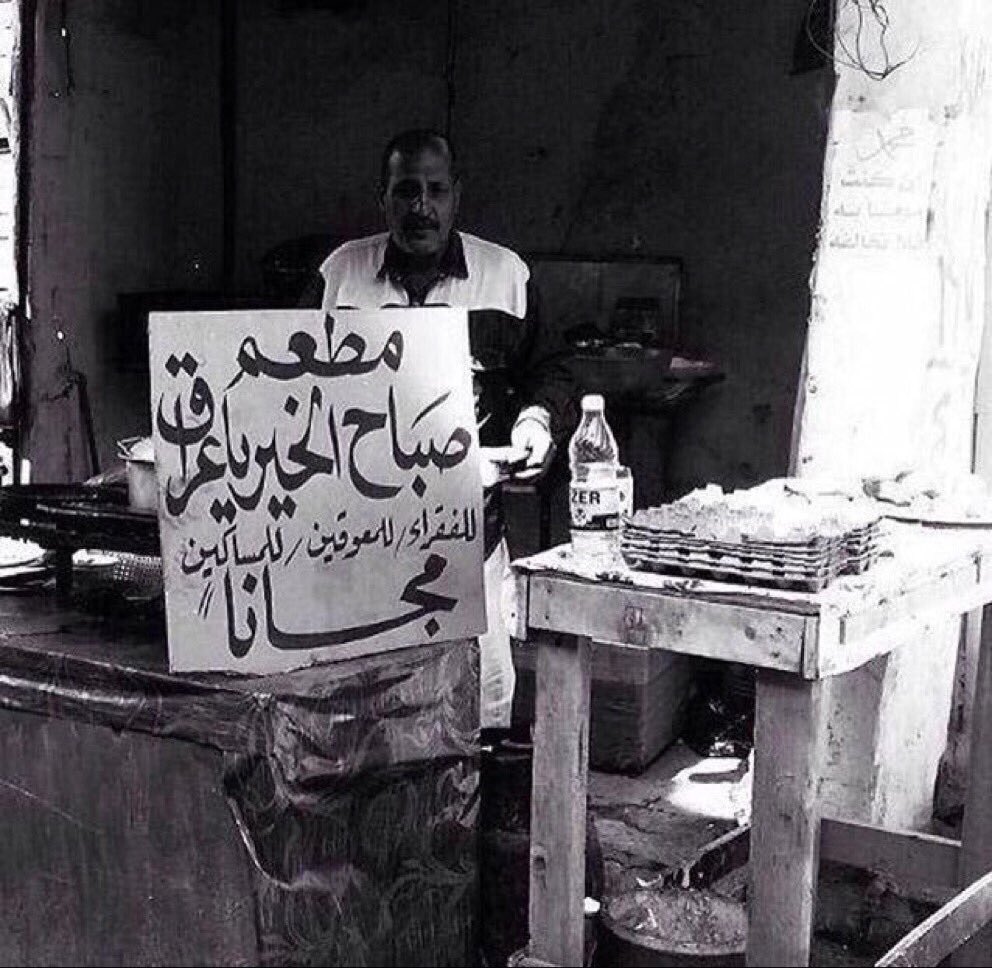 مطعم
صباح الخير يا عراق
للفقراء / للمعوقين / للمساكين
مجاناً
ZER